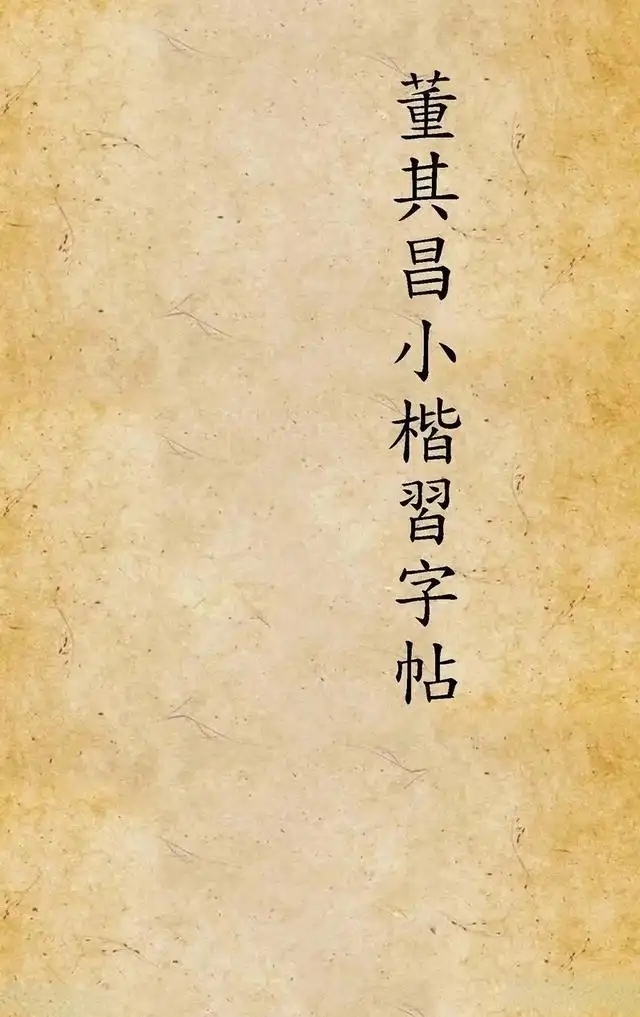 董其昌小楷習字帖